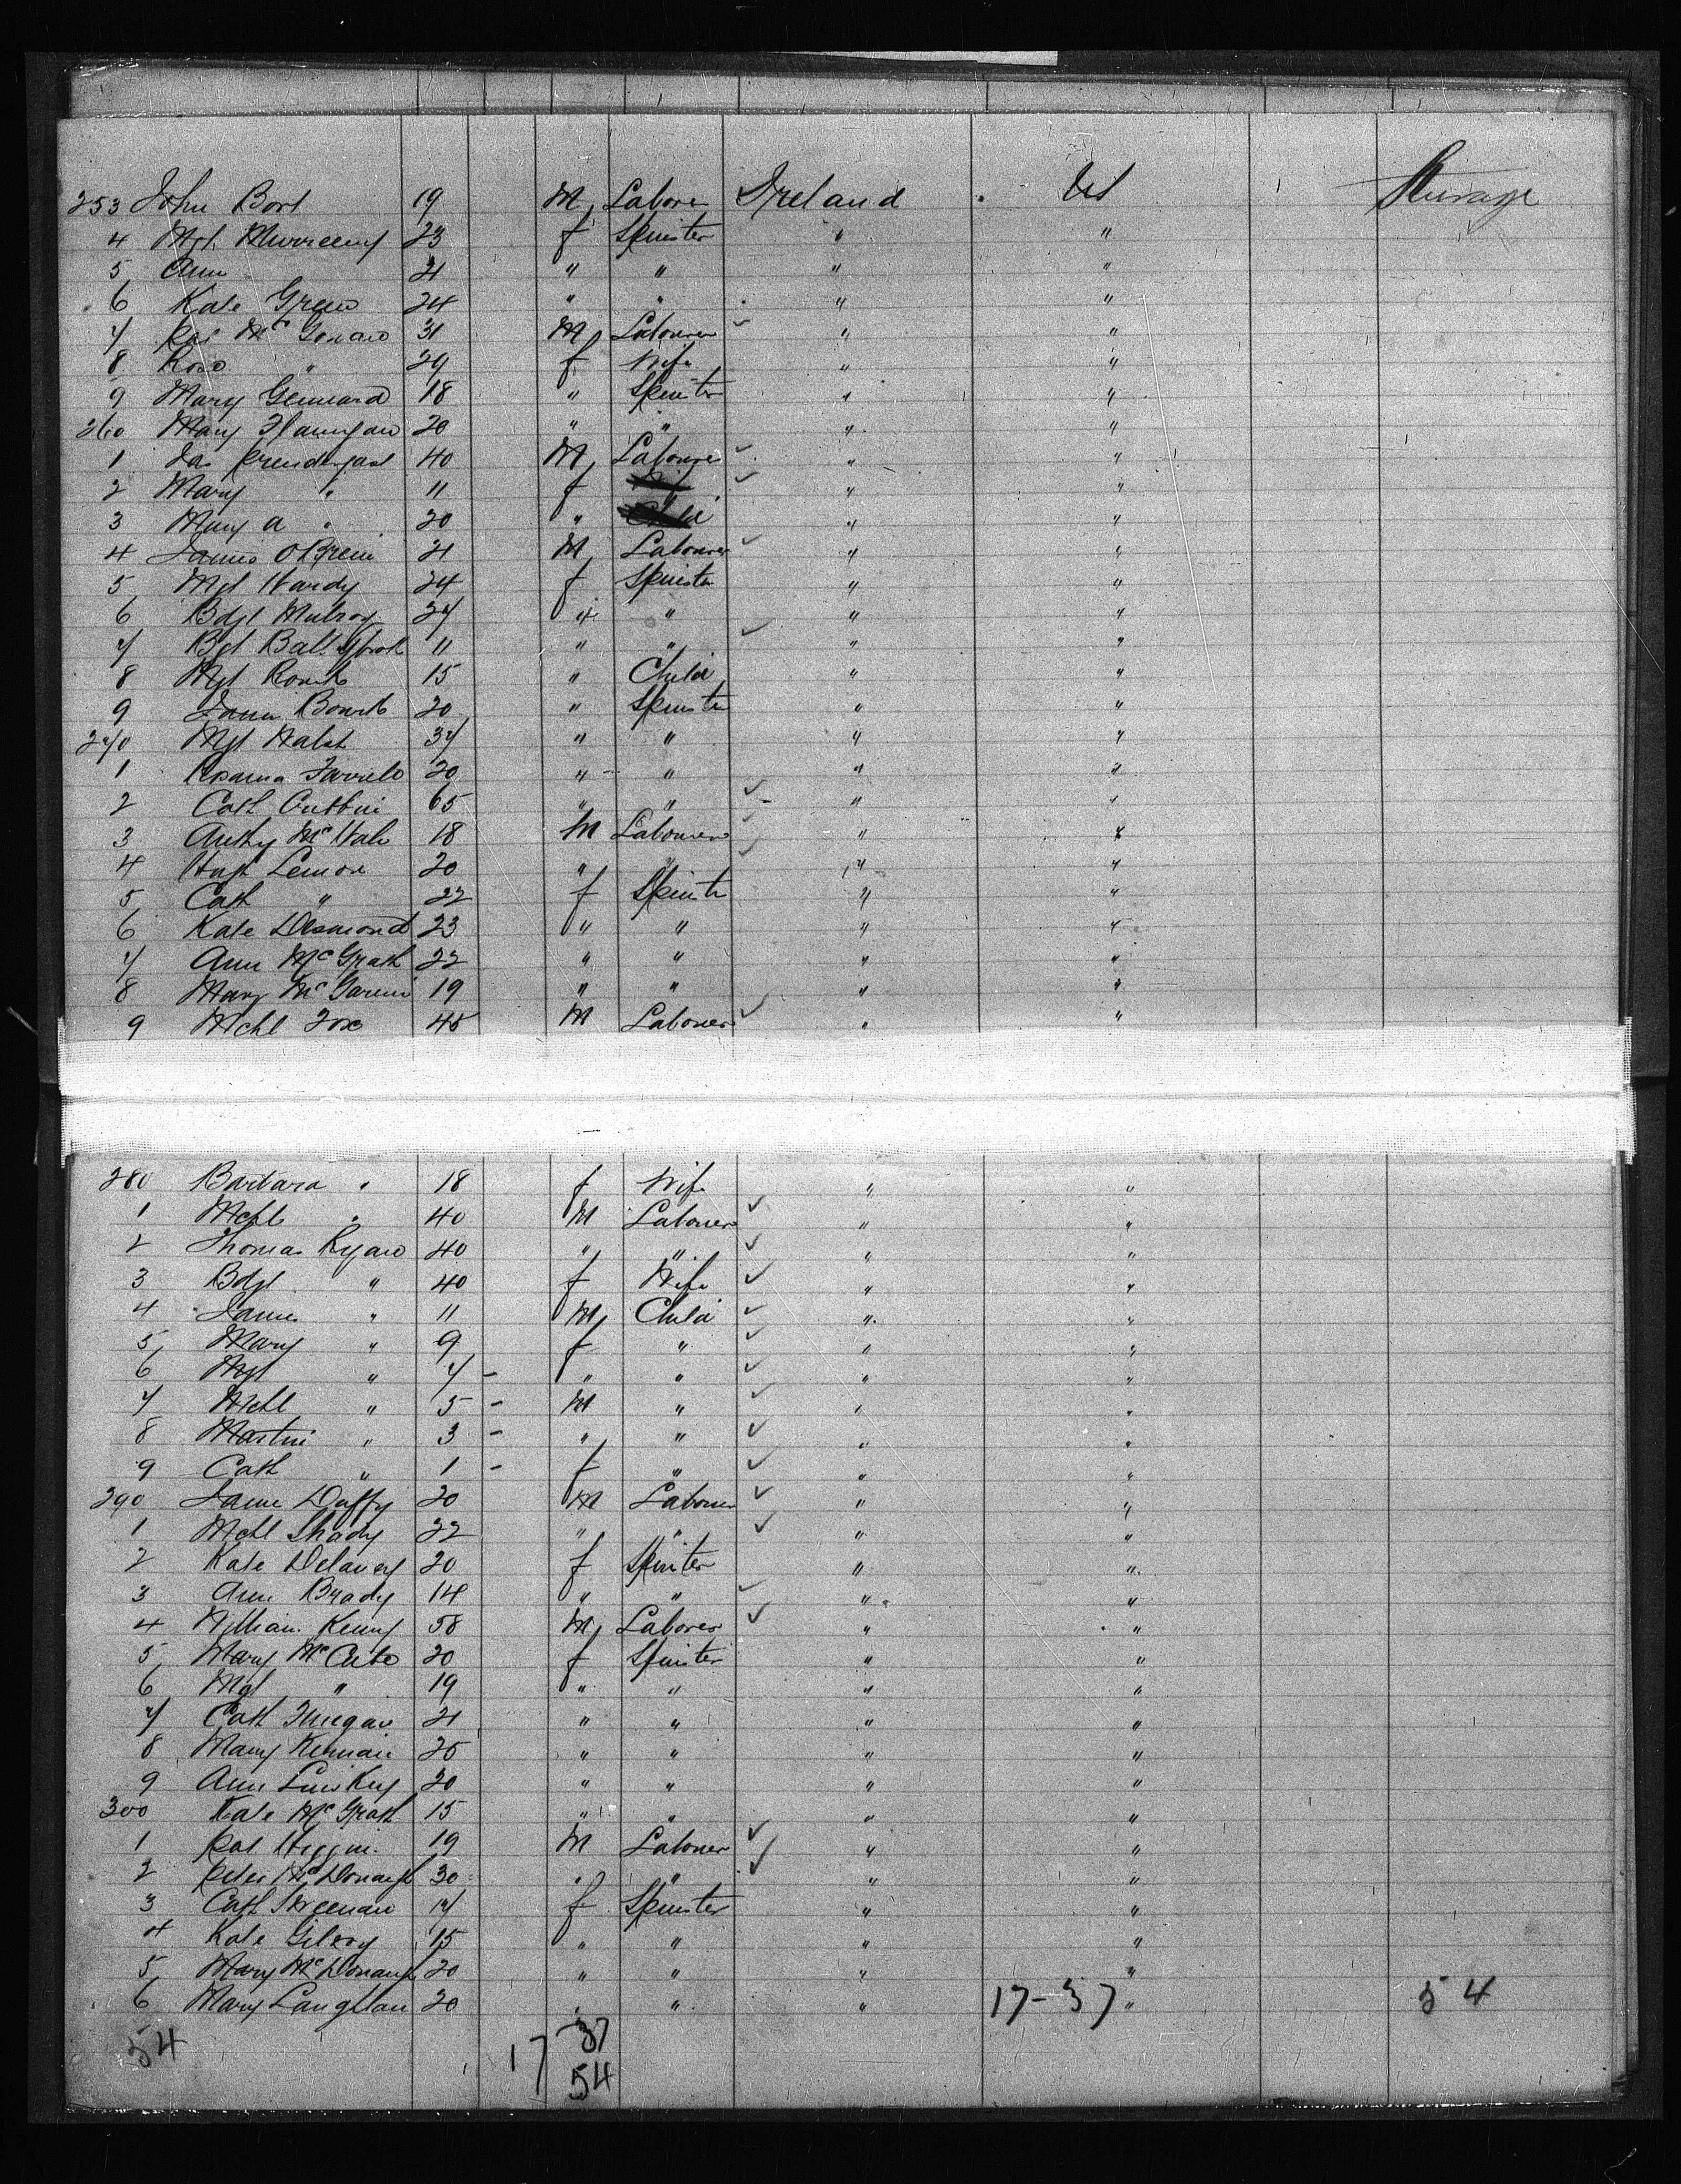 253 John 19 M Laborer Ireland US Steerage
4 Mgt 23 f Spinster " "
5 Ann 21 " " " "
6 Kate Green 24 " " " "
7 Pat Mc 31 M Labourer " "
8 Rose " 29 f Wife " "
9 Mary Gennard 18 " Spinster " "
260 Mary Flannigan 20 " " " "
1 Jas Prendergast 40 M Labourer " "
2 Mary " 11 f " "
3 Mary A " 20 " Child " "
4 James O'Brein 21 M Labourer " "
5 Mgt Hardy 24 f Spinster " "
6 Bdgt Mulroy 27 " " " "
7 Bgt 11 " " " "
8 Mgt 15 " Child " "
9 20 " Spinster " "
270 Mgt Walsh 37 " " " "
1 Rosanna 20 " " " "
2 Cath 65 " " " "
3 Anthy McHale 18 M Labourer " "
4 Hugh 20 " " " "
5 Cath " 22 f Spinster " "
6 Kate Desmond 23 " " " "
7 Ann McGrath 22 " " " "
8 Mary Mc 19 " " " "
9 Mchl Fox 45 M Laborer " "
280 Barbara " 18 f Wife " "
1 Mchl " 40 M Laborer " "
2 Thomas Ryan 40 " " " "
3 Bdgt " 40 f Wife " "
4 James " 11 M Child " "
5 Mary " 9 f " " "
6 Mgt " 7 - " " " "
7 Mchl " 5 - M " " "
8 Martin " 3 - " " " "
9 Cath " 1 - f " " "
290 James Duffy 20 M Laborer " "
1 Mchl Shady 22 " " " "
2 Kate Delaney 20 f Spinster " "
3 Ann Brady 14 " " " "
4 William Kenny 58 M Laborer " "
5 Mary McCabe 20 f Spinster " "
6 Mgt " 19 " " " "
7 Cath Finegan 21 " " " "
8 Mary Kernan 25 " " " "
9 Ann Linskey 20 " " " "
300 Kate McGrath 15 " " " "
1 Pat Higgins 19 M Laborer " "
2 Peter McDonaugh 30 " " " "
3 Cath 17 f Spinster " "
4 Kate Gilroy 15 " " " "
5 Mary McDonaugh 20 " " " "
6 Mary Laughlan 20 " " " 17-37 " 54
54 17 37
54